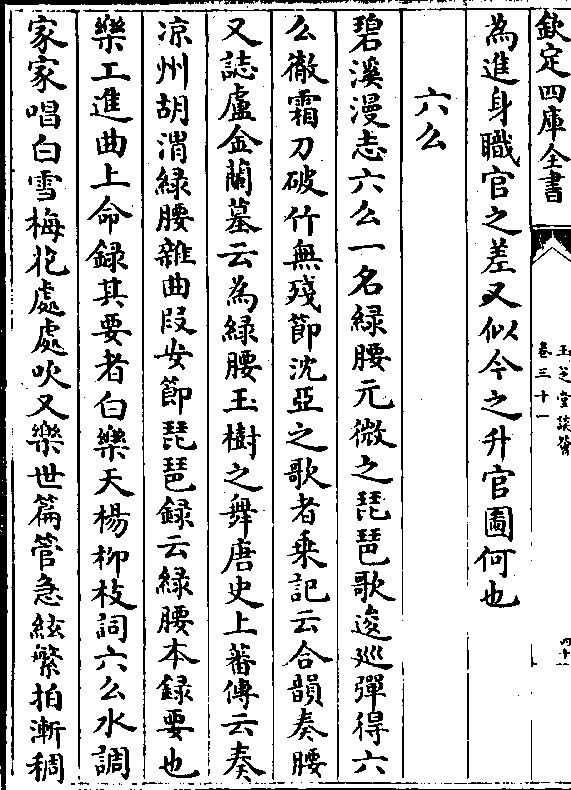 欽定四庫全書
玉芝堂談薈
卷三十一
四十一
為進身職官之差又似今之升官圖何也
六么
碧溪漫志六么一名緑腰元微之琵琶歌逡巡彈得六
么徹霜刀破竹無殘節沈亞之歌者乗記云合韻奏腰
又誌盧金蘭墓云為緑腰玉樹之舞唐史上蕃傳云奏
凉州胡渭緑腰雜曲叚安節琵琶録云緑腰本録要也
樂工進曲上命録其要者白樂天楊柳枝詞六么水調
家家唱白雪梅花處處吹又樂世篇管急絃繁拍漸稠